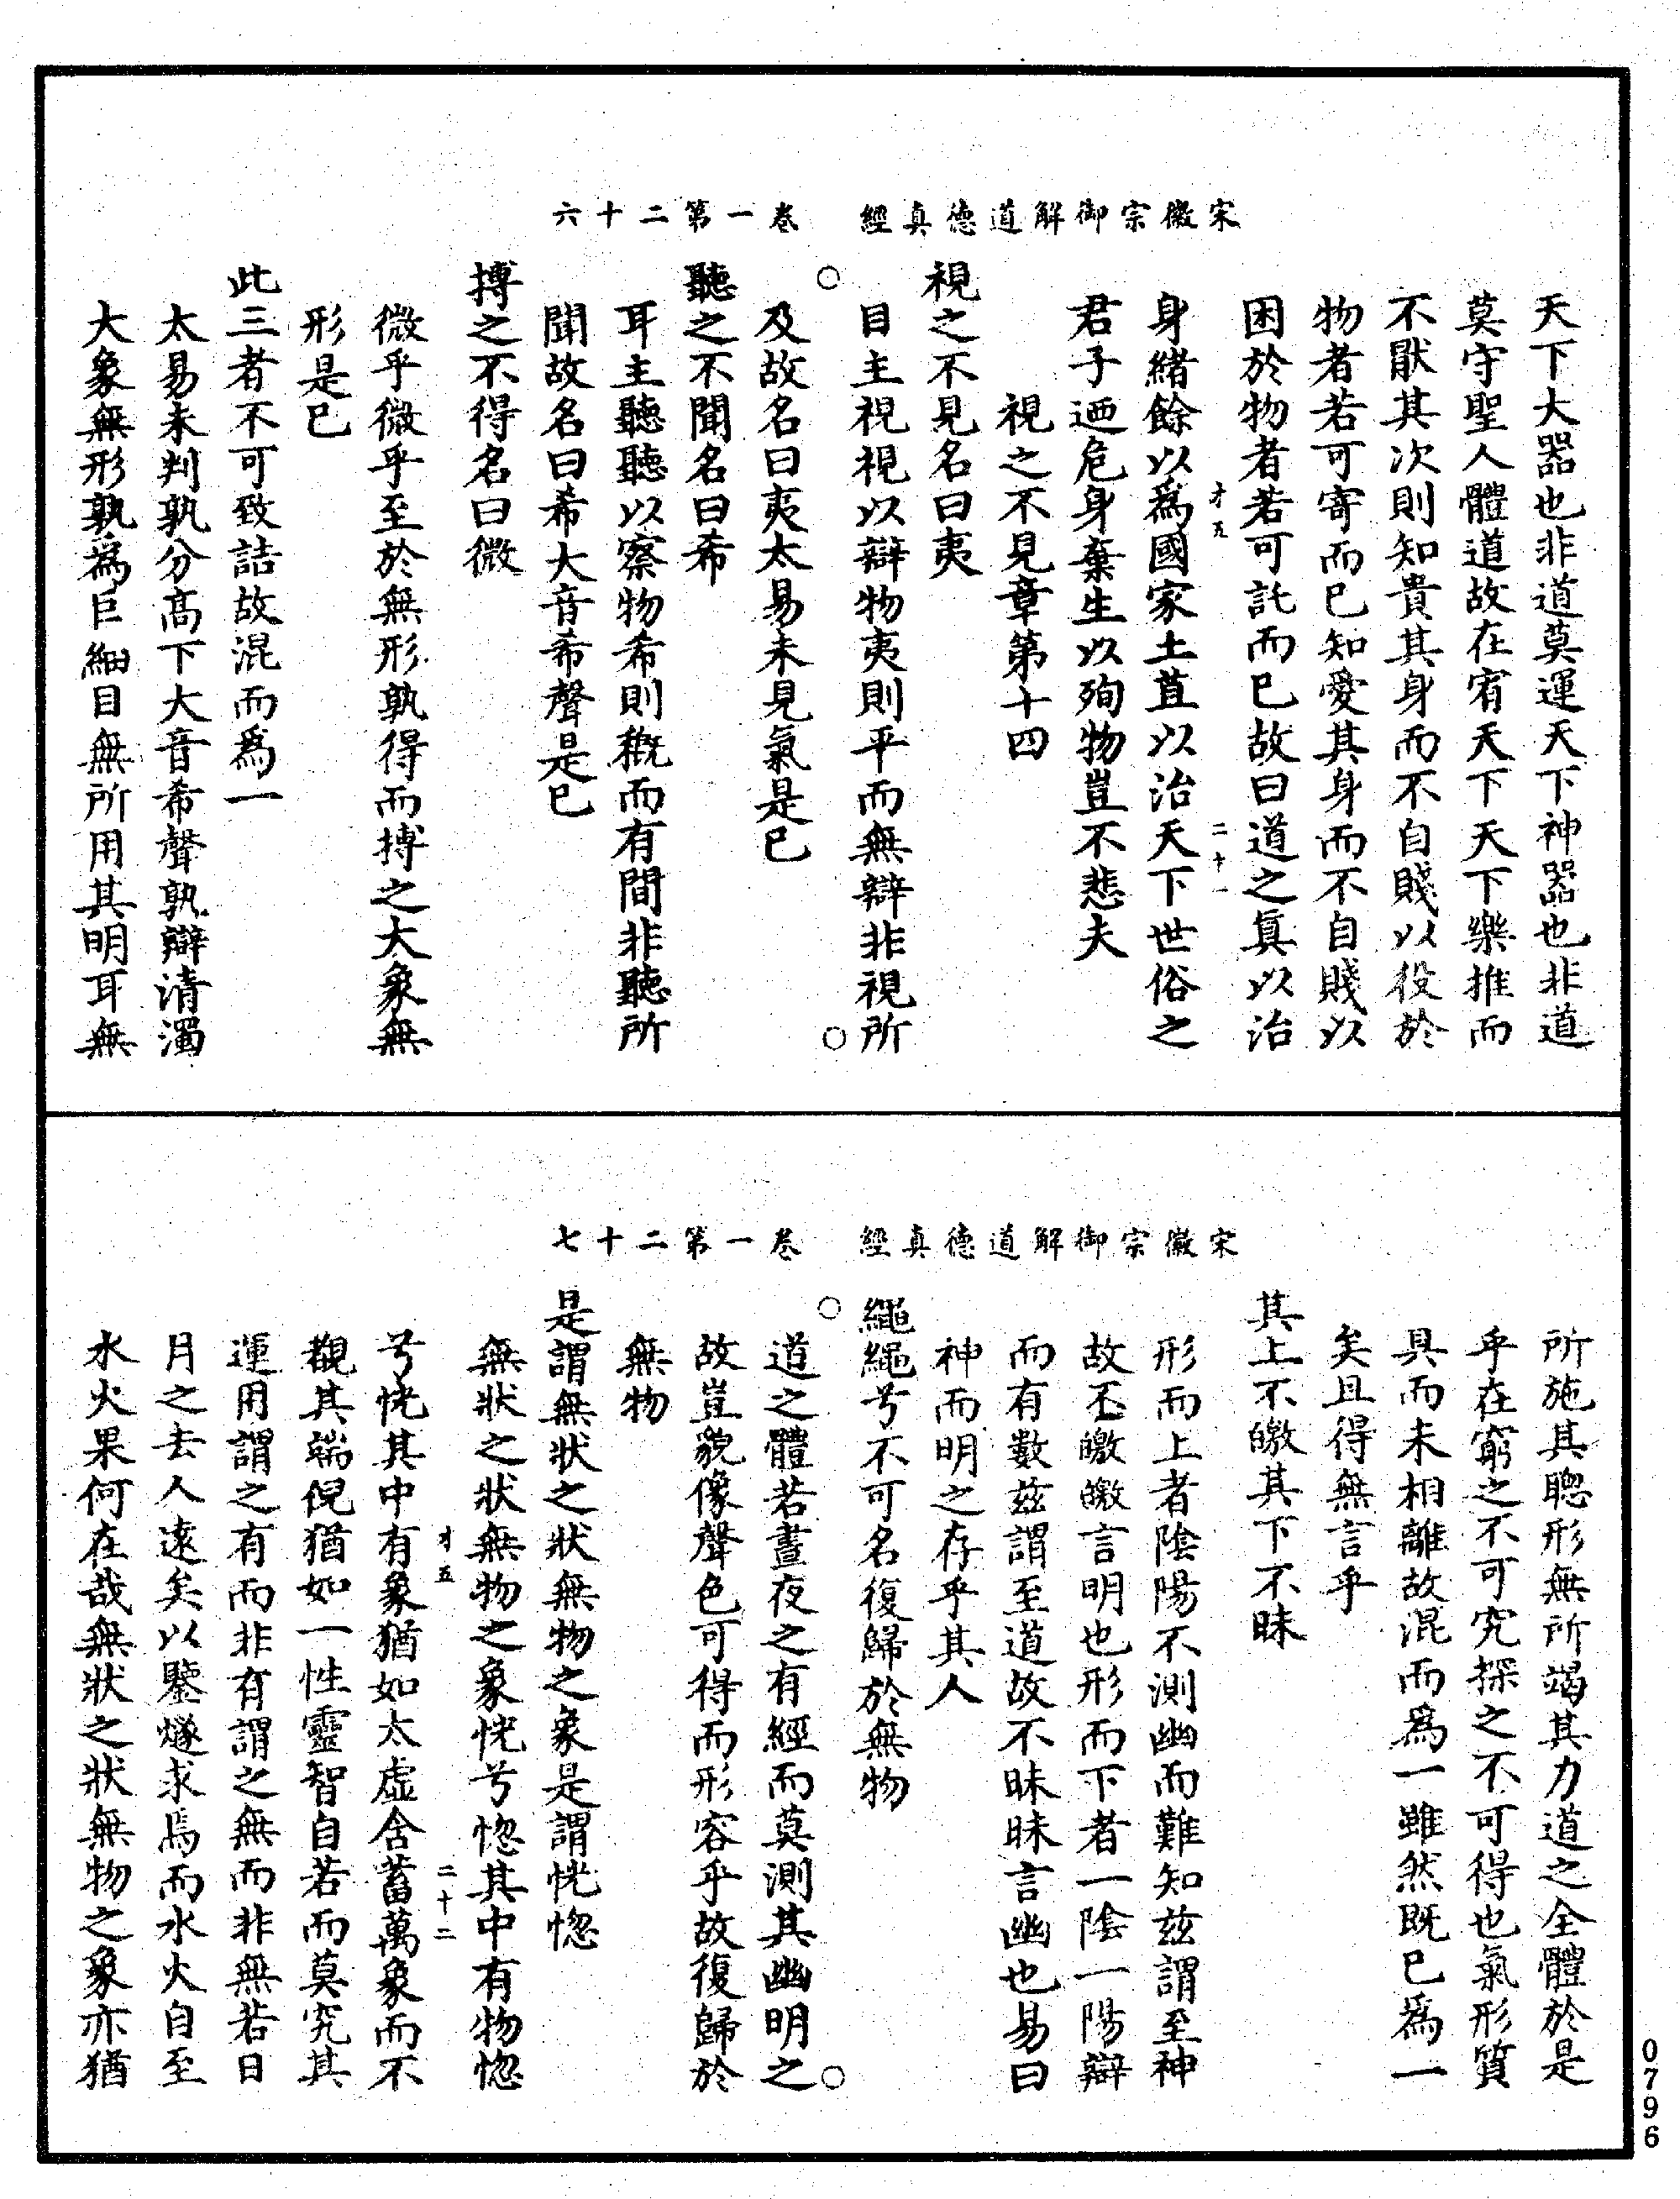 宋徽宗御解道德真經　卷一第二十六
天下大器也非道莫運天下神器也非道
莫守聖人體道故在宥天下天下樂推而
不猒其次則知貴其身而不自賤以役於
物者若可寄而已知愛其身而不自賤以
困於物者若可託而已故曰道之真以治
才五　二十一
身緒餘以為國家土苴以治天下世俗之
君子迺危身棄生以殉物豈不悲夫
視之不見章第十四
視之不見名曰夷
目主視視以辯物夷則平而無辯非視所
及故名曰夷太易未見氣是已
聽之不聞名曰希
耳主聽聽以察物希則概而有間非聽所
聞故名曰希大音希聲是已
搏之不得名曰微
微乎微乎至於無形孰得而搏之大象無
形是已
此三者不可致詰故混而為一
太易未判孰分高下大音希聲孰辯清濁
大象無形孰為巨細目無所用其明耳無
宋徽宗御解道德真經　卷一第二十七
所施其聰形無所竭其力道之全體於是
乎在窮之不可究探之不可得也氣形質
具而未相離故混而為一雖然既已為一
矣且得無言乎
其上不皦其下不昧
形而上者陰陽不測幽而難知茲謂至神
故不皦皦言明也形而下者一陰一陽辯
而有數茲謂至道故不昧昧言幽也易曰
神而明之存乎其人
繩繩兮不可名復歸於無物
道之體若晝夜之有經而莫測其幽明之
故豈貌像聲色可得而形容乎故復歸於
無物
是謂無狀之狀無物之象是謂恍惚
無狀之狀無物之象恍兮惚其中有物惚
才五　二十二
兮恍其中有象猶如太虛含蓄萬象而不
覩其端倪猶如一性靈智自若而莫究其
運用謂之有而非有謂之無而非無若日
月之去人遠矣以鑒燧求焉而水火自至
水火果何在哉無狀之狀無物之象亦猶
0796